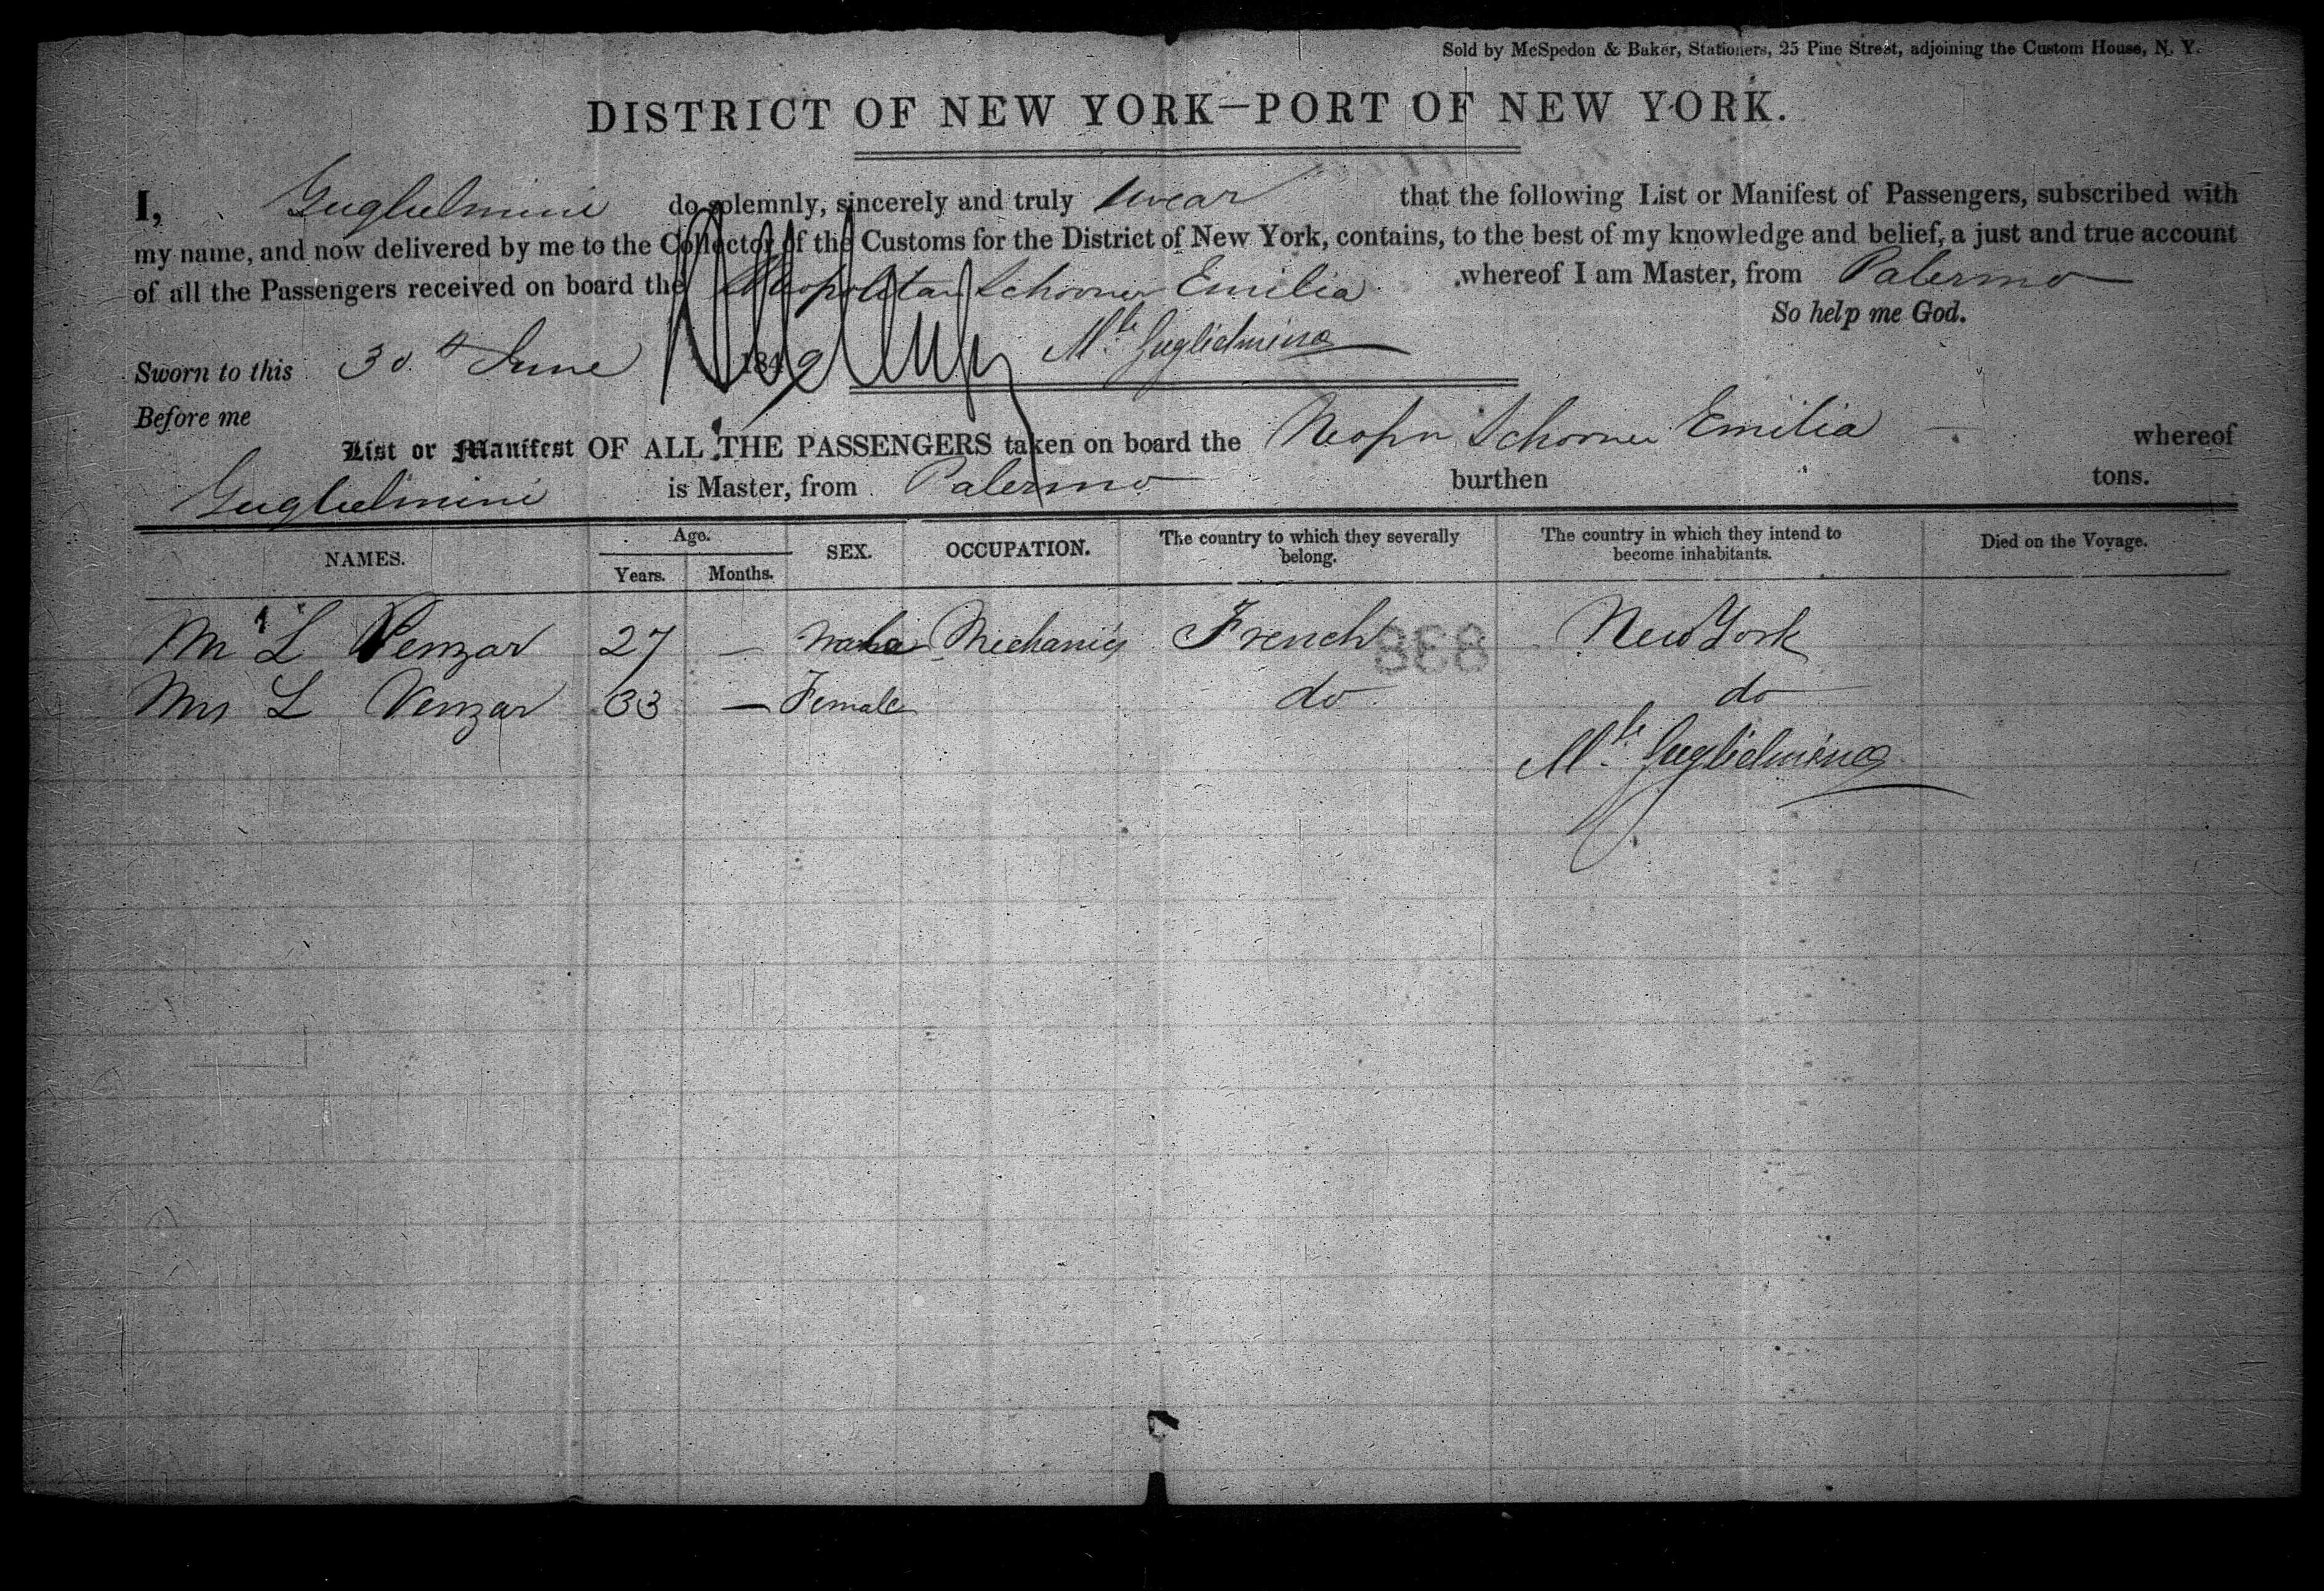 Sold by McSpedon & Baker, Stationers, 25 Pine Street, adjoining the Custom House, N. Y.
DISTRICT OF NEW YORK—PORT OF NEW YORK.
I, Guglielmini do solemnly, sincerely and truly swear that the following List or Manifest of Passengers, subscribed with
my name, and now delivered by me to the Collector of the Customs for the District of New York, contains, to the best of my knowledge and belief, a just and true account
of all the Passengers received on board the Neopolitan Schooner Emilia whereof I am Master, from Palermo
So help me God.
Sworn to this 30th June 1849 Mle Guglielmino
Before me
List or Manifest OF ALL THE PASSENGERS taken on board the Neopn Schooner Emilia whereof
Guglielmini is Master, from Palermo burthen tons.
NAMES. Age. Years. Months. SEX. OCCUPATION. The country to which they severally belong. The country in which they intend to become inhabitants. Died on the Voyage.
Mr L Venzar 27 — Male Mechanics French New York
838
Mrs L Venzar 33 — Female do do
Mle Guglielmino